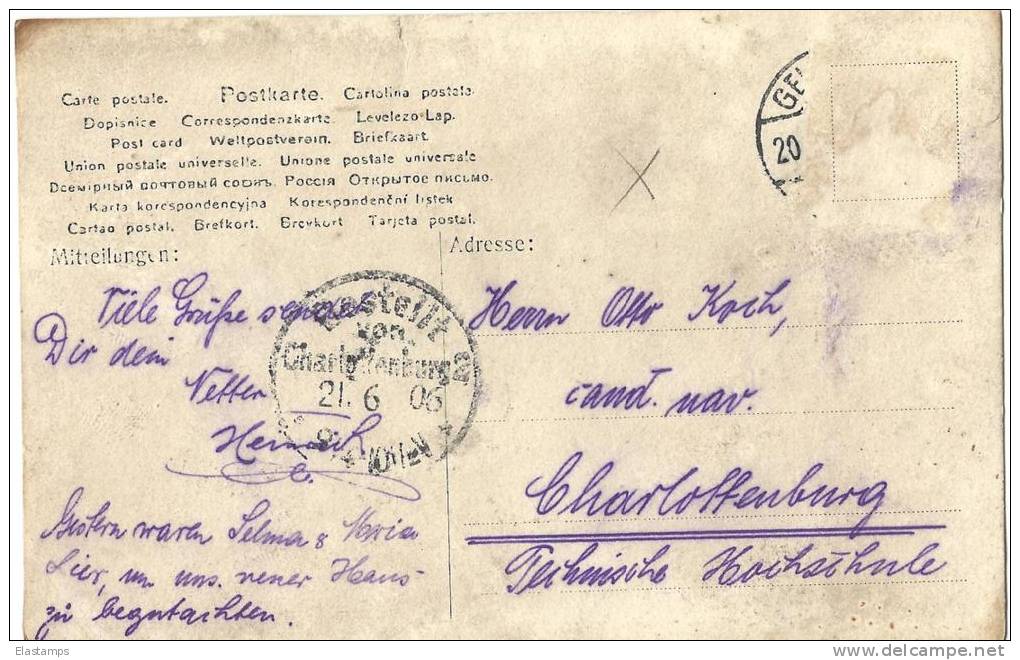 Carte postale. Postkarte. Cartolina postale.
Dopisnice Correspondenzkarte. Levelezo-Lap.
Post card Weltpostverein. Briefkaart.
Union postale universelle. Unione postale universale
Всемірный почтовый союзъ. Россія Открытое письмо.
Karta korespondencyjna Korespondenční listek
Cartao postal. Brefkort. Brevkort Tarjeta postal.
Mitteilungen:
Adresse:
GE
20
Viele Grüße sendet
Dir dein
Vetter
Heinrich
Gestern waren Selma & Maria
hier, um uns. neues Haus
zu begutachten.
Bestellt
von
Charlottenburg
21. 6 06
Herrn Otto Koch,
cand. nav.
Charlottenburg
Technische Hochschule
Elastamps
www.delcampe.net